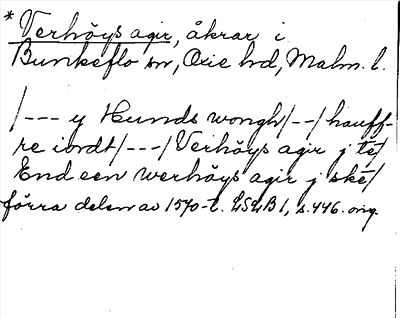 * Verhöys agir, åkrar i
Bunkeflo sn, Oxie hd, Malm. l.
/--- y Hunds wongh/--/hauff-
re iordt/---/Verhöys agir j te/
End een werhöys agir j ske/
förra delen av 1570-t. LSLB 1, s. 446. orig.